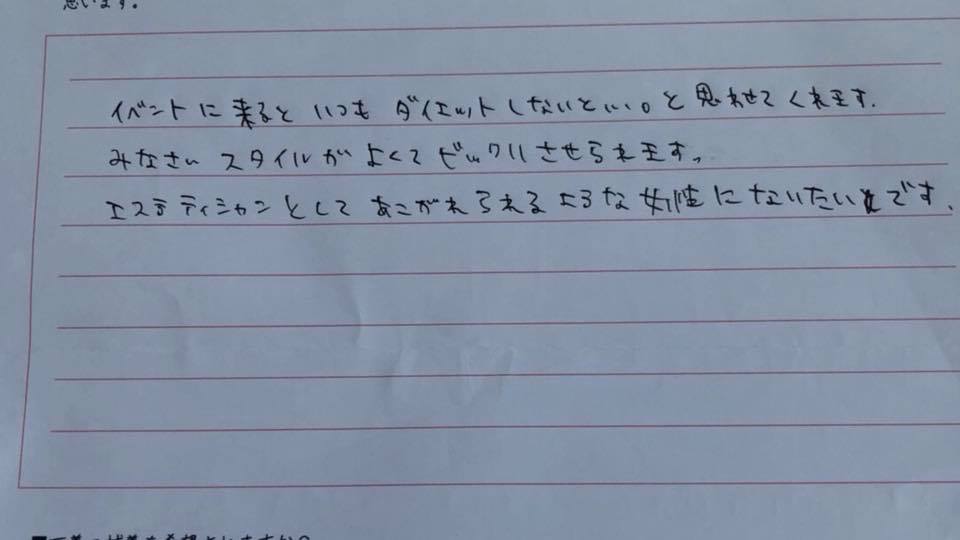 思います。
イベントに来るといつもダイエットしないといい。と思わせてくれます。
みなさいスタイルがよくてビックリさせられます。
エステティシャンとしてあこがれられるような女性にないたいです。